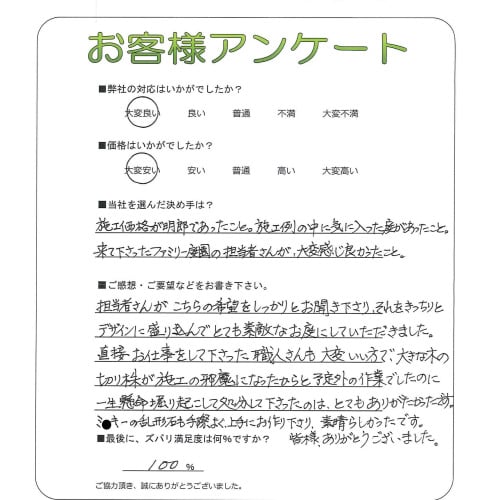 お客様アンケート
■弊社の対応はいかがでしたか？
大変良い 良い 普通 不満 大変不満
■価格はいかがでしたか？
大変安い 安い 普通 高い 大変高い
■当社を選んだ決め手は？
施工価格が明郎であったこと。施工例の中に気に入った庭があったこと。
来て下さったファミリー庭園の担当者さんが、大変感じ良かったこと。
■ご感想・ご要望などをお書き下さい。
担当者さんが こちらの希望をしっかりとお聞き下さり、それをきっちりと
デザインに盛り込んでとても素敵なお庭にしていただきました。
直接お仕事をして下さった職人さんも 大変いい方で、大きな木の
切り株が施工の邪魔になったからと予定外の作業でしたのに
一生懸命掘り起こして処分して下さったのは、とてもありがたかったです。
ミ キーの乱形石も手際よく上手にお作り下さり、素晴らしかったです。
■最後に、ズバリ満足度は何％ですか？ 皆様、ありがとうございました。
100 ％
ご協力頂き、誠にありがとうございました。